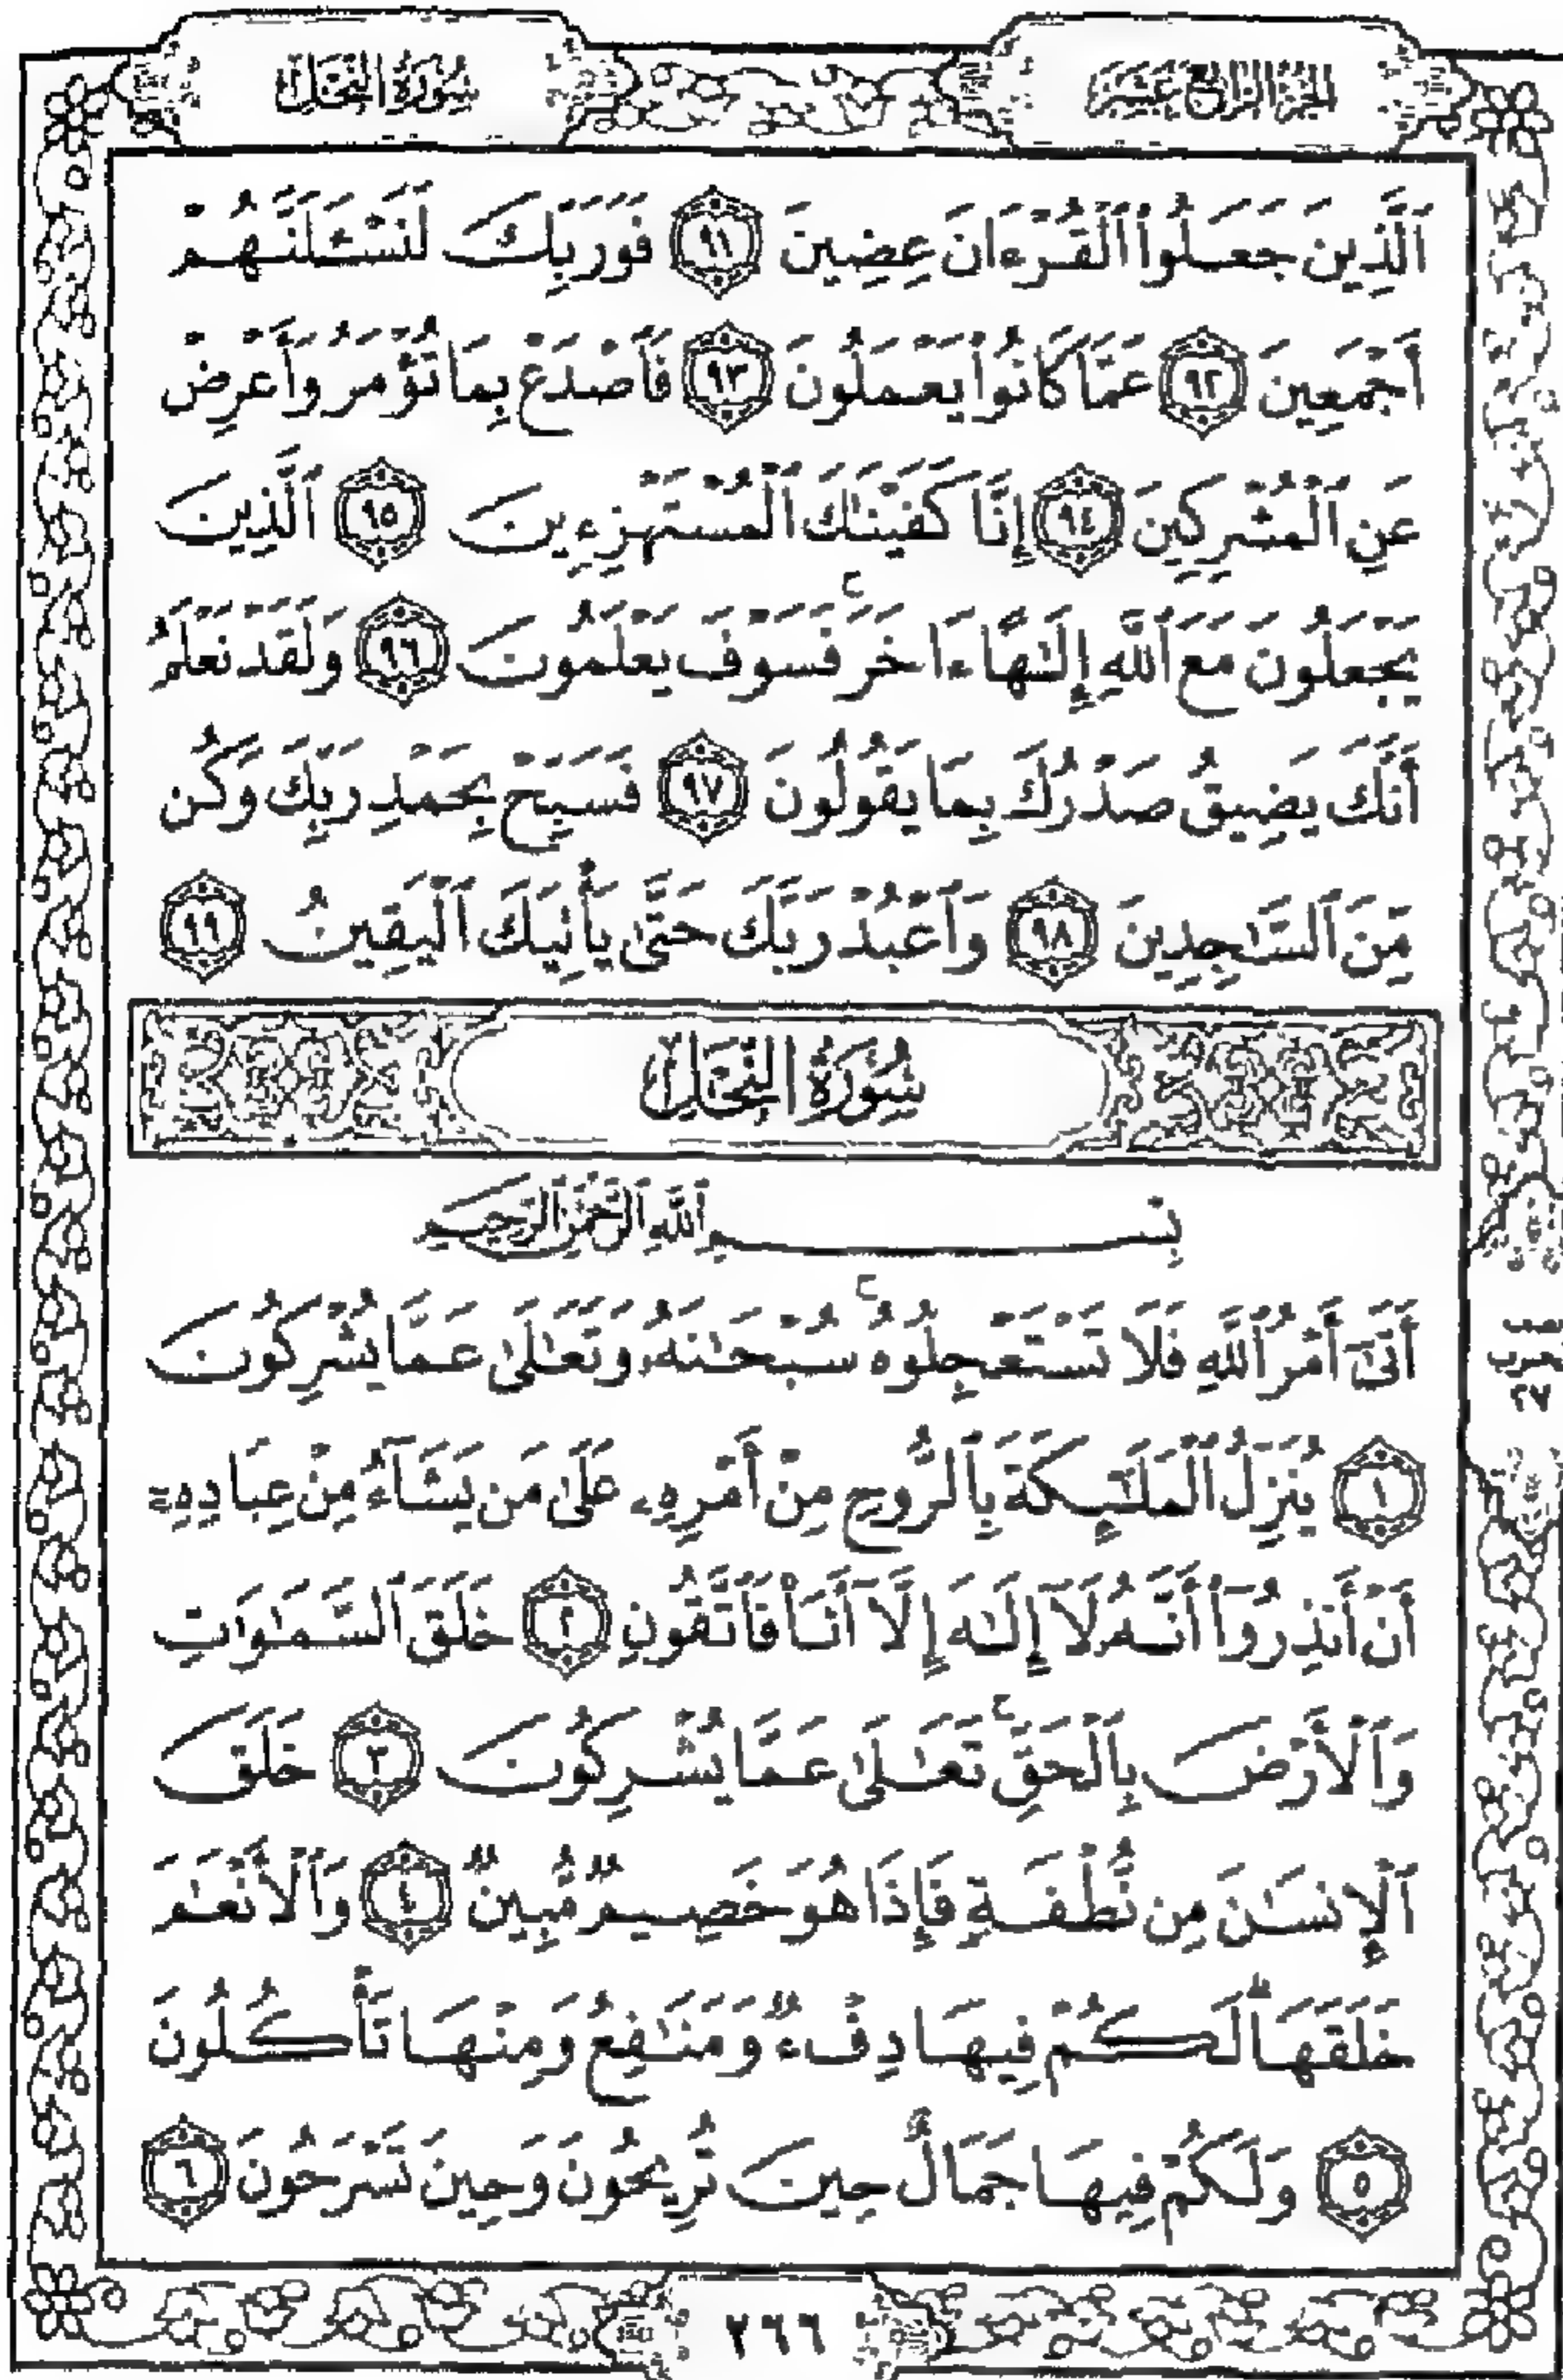 الجزء الرابع عشر
سورة النحل
ٱلَّذِينَ جَعَلُوا۟ ٱلْقُرْءَانَ عِضِينَ ٩١ فَوَرَبِّكَ لَنَسْـَٔلَنَّهُمْ
أَجْمَعِينَ ٩٢ عَمَّا كَانُوا۟ يَعْمَلُونَ ٩٣ فَٱصْدَعْ بِمَا تُؤْمَرُ وَأَعْرِضْ
عَنِ ٱلْمُشْرِكِينَ ٩٤ إِنَّا كَفَيْنَٰكَ ٱلْمُسْتَهْزِءِينَ ٩٥ ٱلَّذِينَ
يَجْعَلُونَ مَعَ ٱللَّهِ إِلَٰهًا ءَاخَرَ ۚ فَسَوْفَ يَعْلَمُونَ ٩٦ وَلَقَدْ نَعْلَمُ
أَنَّكَ يَضِيقُ صَدْرُكَ بِمَا يَقُولُونَ ٩٧ فَسَبِّحْ بِحَمْدِ رَبِّكَ وَكُن
مِّنَ ٱلسَّٰجِدِينَ ٩٨ وَٱعْبُدْ رَبَّكَ حَتَّىٰ يَأْتِيَكَ ٱلْيَقِينُ ٩٩
سُورَةُ النَّحْلِ
بِسْمِ ٱللَّهِ ٱلرَّحْمَٰنِ ٱلرَّحِيمِ
أَتَىٰٓ أَمْرُ ٱللَّهِ فَلَا تَسْتَعْجِلُوهُ ۚ سُبْحَٰنَهُۥ وَتَعَٰلَىٰ عَمَّا يُشْرِكُونَ
١ يُنَزِّلُ ٱلْمَلَٰٓئِكَةَ بِٱلرُّوحِ مِنْ أَمْرِهِۦ عَلَىٰ مَن يَشَآءُ مِنْ عِبَادِهِۦٓ
أَنْ أَنذِرُوٓا۟ أَنَّهُۥ لَآ إِلَٰهَ إِلَّآ أَنَا۠ فَٱتَّقُونِ ٢ خَلَقَ ٱلسَّمَٰوَٰتِ
وَٱلْأَرْضَ بِٱلْحَقِّ ۚ تَعَٰلَىٰ عَمَّا يُشْرِكُونَ ٣ خَلَقَ
ٱلْإِنسَٰنَ مِن نُّطْفَةٍ فَإِذَا هُوَ خَصِيمٌ مُّبِينٌ ٤ وَٱلْأَنْعَٰمَ
خَلَقَهَا ۗ لَكُمْ فِيهَا دِفْءٌ وَمَنَٰفِعُ وَمِنْهَا تَأْكُلُونَ
٥ وَلَكُمْ فِيهَا جَمَالٌ حِينَ تُرِيحُونَ وَحِينَ تَسْرَحُونَ ٦
٢٦٦